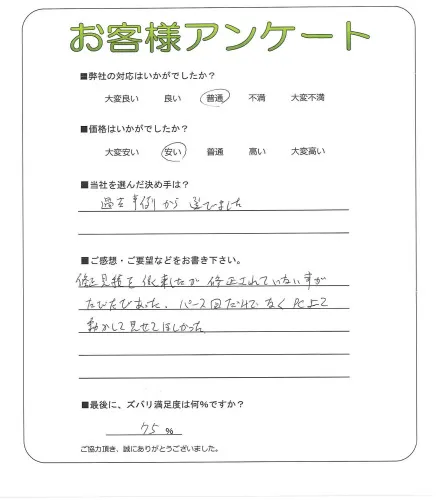 お客様アンケート
■弊社の対応はいかがでしたか?
大変良い 良い 普通 不満 大変不満
■価格はいかがでしたか?
大変安い 安い 普通 高い 大変高い
■当社を選んだ決め手は?
過去事例から選びました
■ご感想・ご要望などをお書き下さい。
修正見積を依頼したが修正されていない事が
たびたびあった。パース図だけでなくPC上で
動かして見せてほしかった
■最後に、ズバリ満足度は何%ですか?
75 %
ご協力頂き、誠にありがとうございました。